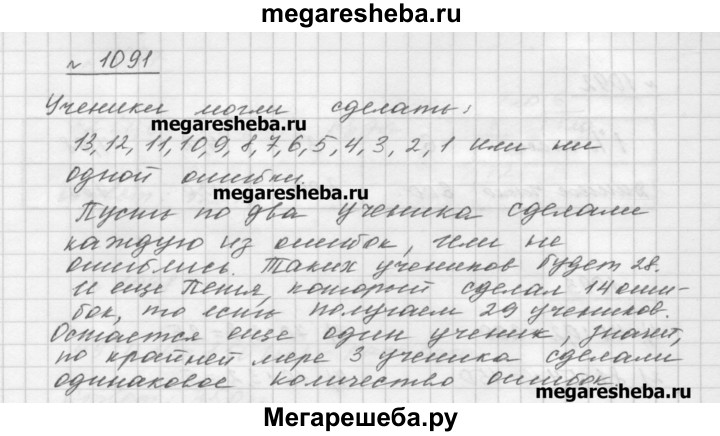 megaresheba.ru
№ 1091
Ученики могли сделать:
megaresheba.ru
13, 12, 11, 10, 9, 8, 7, 6, 5, 4, 3, 2, 1 или ни
одной ошибки.
megaresheba.ru
Пусть по два ученика сделали
каждую из ошибок, или не
ошиблись. Таких учеников будет 28.
И еще Петя, который сделал 14 оши-
бок, то есть получаем 29 учеников.
Остается еще один ученик, значит,
по крайней мере 3 ученика сделали
одинаковое количество ошибок.
Мегарешеба.ру